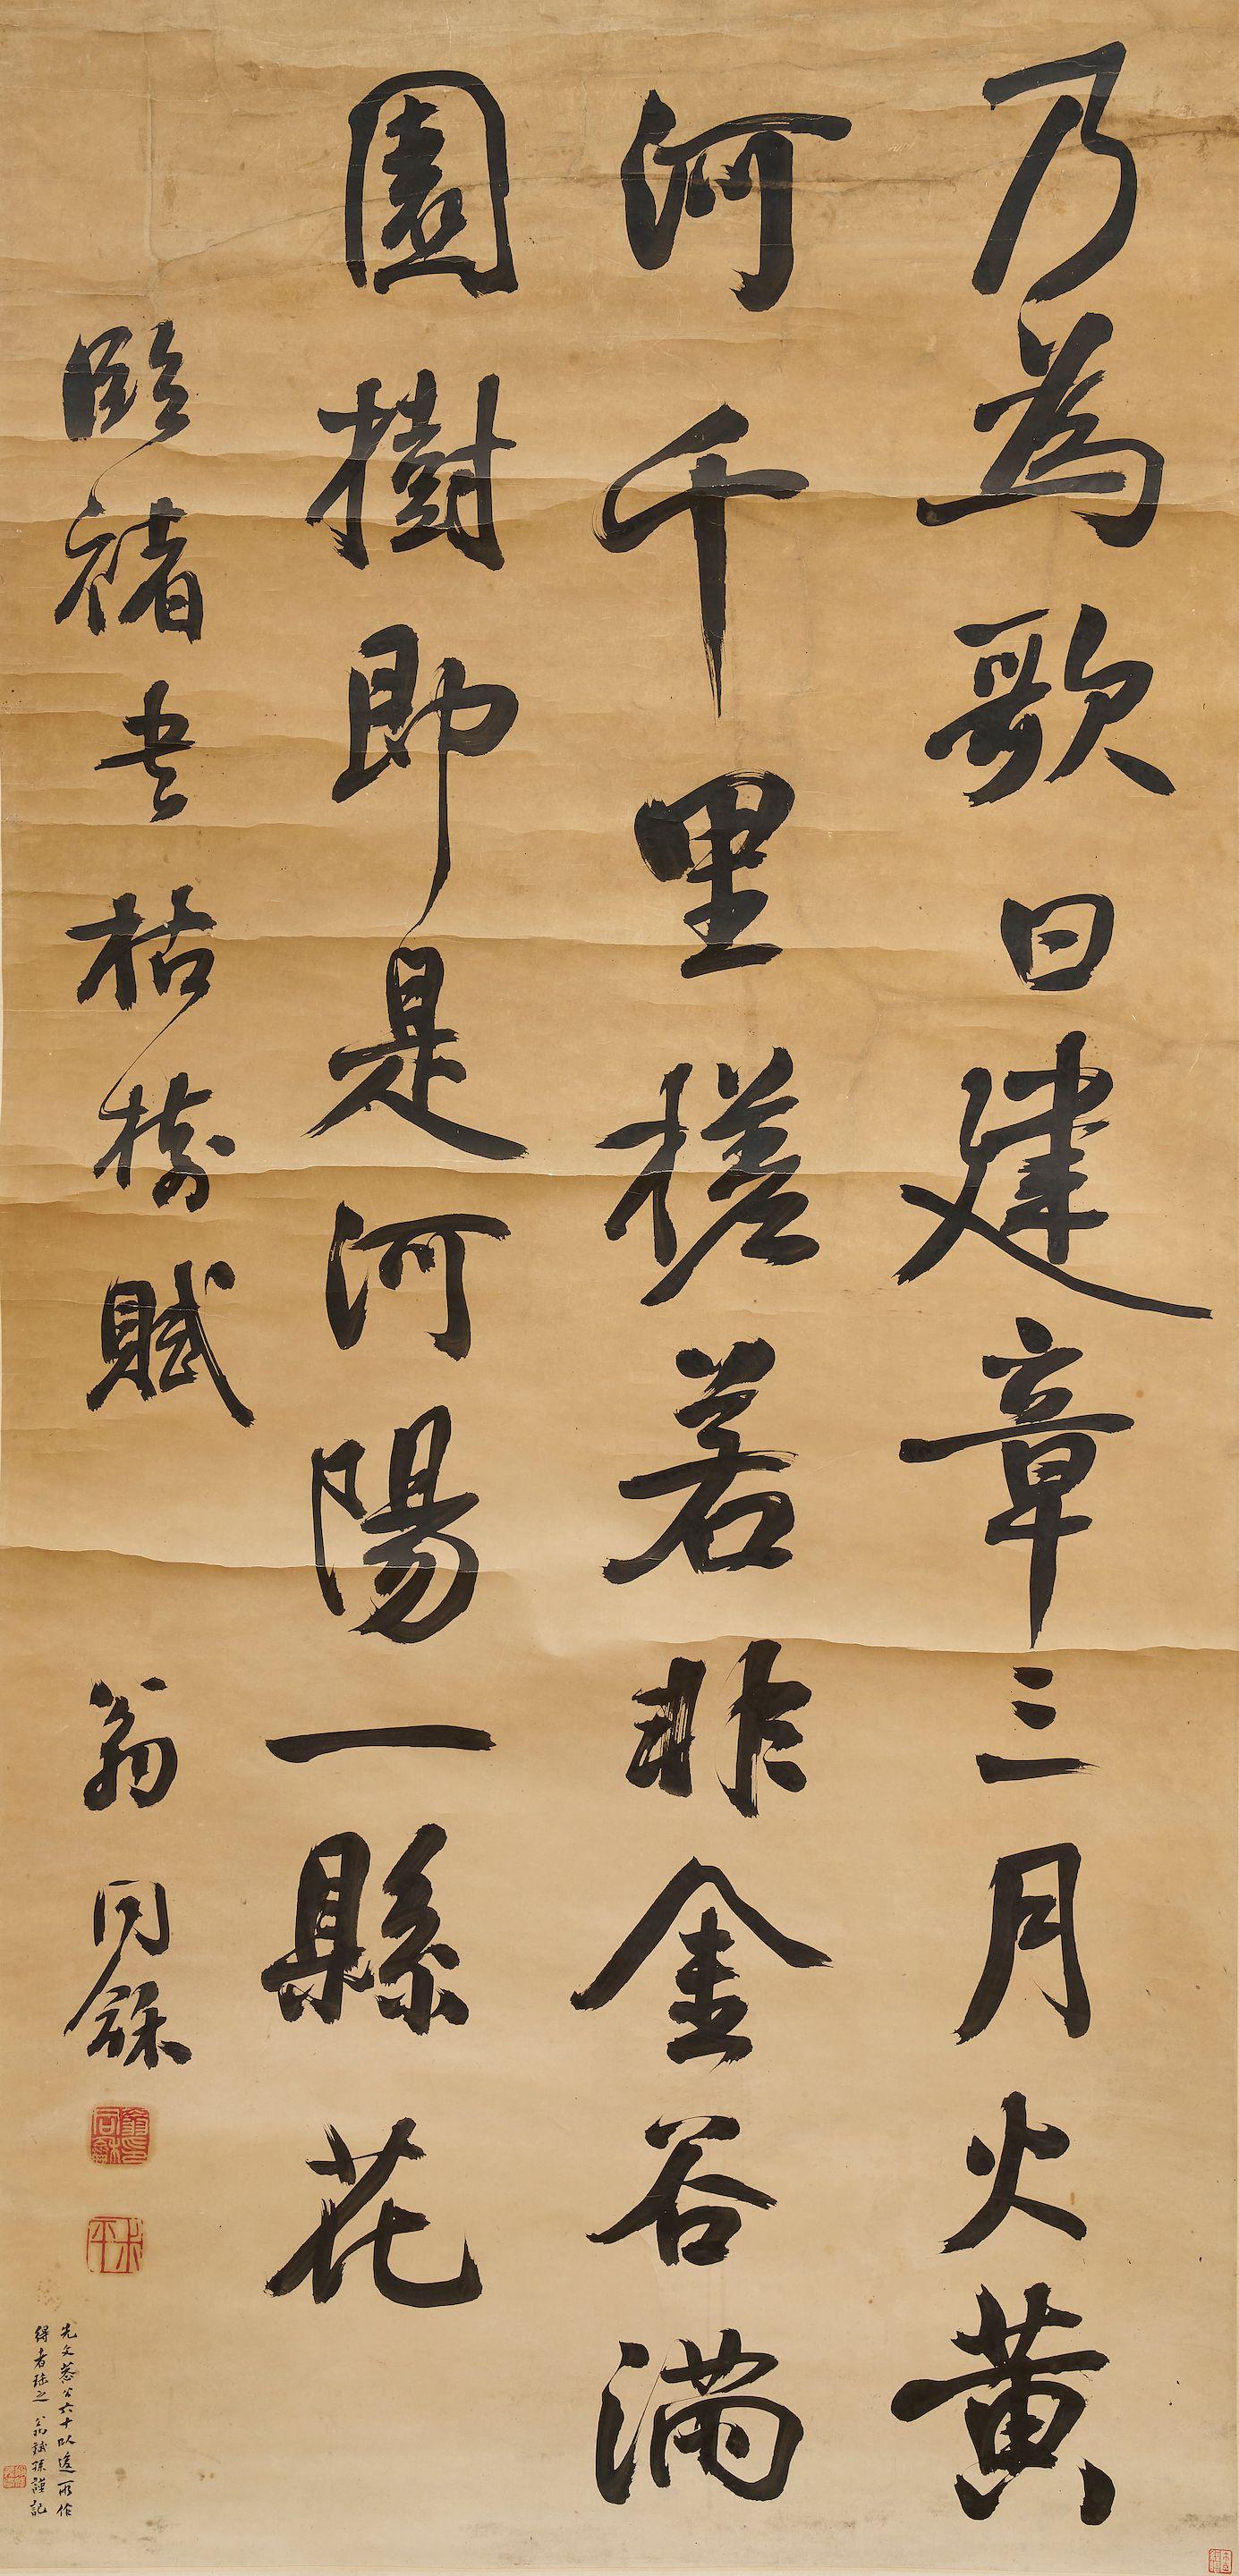 乃為歌曰建章三月火黃
河千里槎若非金谷滿
園樹即是河陽一縣花
臨褚書枯樹賦 翁同龢
翁同龢印
叔平
先文恭公六十以後所作
得者珍之 翁斌孫謹記